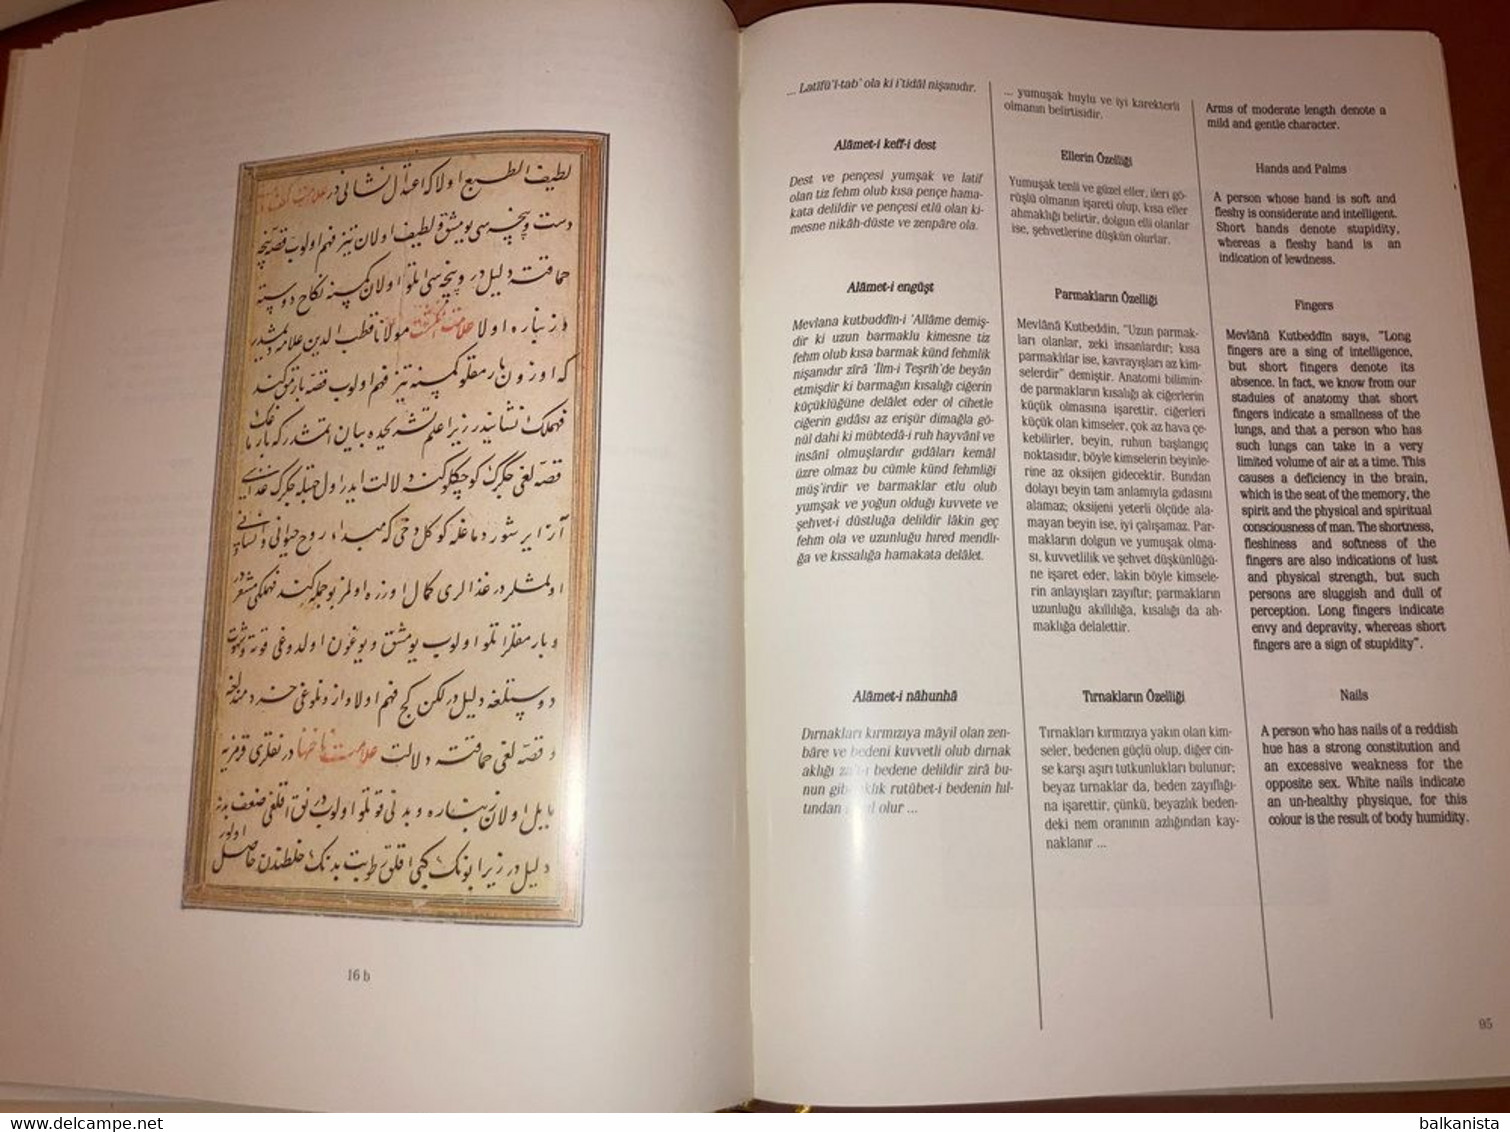 لطیف الطبع اولا که اعتدال نشانی در علامت کف دست
دست و پنجه سی یومشق و لطیف اولان تیز فهم اولوب قصه پنجه
حماقته دلیل در و پنجه سی اتلو اولان کمسنه نکاح دوسته
و زنپاره اولا علامت انگشت مولانا قطب الدین علامه دیمشدر
که اوزون بارمقلو کمسنه تیز فهم اولوب قصه بارمق کند
فهملک نشانیدر زیرا علم تشریحده بیان اتمشدر که بارمغک
قصه لغی جگرک کوچکلوکنه دلالت ایدر اول جهتله جگرک غذاسی
آز ایرشور دماغله کوکل دخی که مبداء روح حیوانی و انسانی
اولمشلردر غذالری کمال اوزره اولمز بو جمله کند فهملکی مشعردر
و بارمقلر اتلو اولوب یومشق و یوغون اولدوغی قوته و شهوت
دوستلغه دلیل در لکن کج فهم اولا و اوزونلوغی خردمندلغه
و قصه لغی حماقته دلالت علامت ناخنها درنقلری قرمزیه
مایل اولان زنپاره و بدنی قوتلو اولوب درنق اقلغی ضعف بدنه
دلیل در زیرا بونک کبی اقلق رطوبت بدنک خلطندن حاصل اولور
16 b
... Latîfü'l-tab' ola ki i'tidâl nişanıdır.
Alâmet-i keff-i dest
Dest ve pençesi yumşak ve latif
olan tiz fehm olub kısa pençe hama-
kata delildir ve pençesi etlû olan ki-
mesne nikâh-düste ve zenpâre ola.
Alâmet-i engüşt
Mevlana kutbuddîn-i 'Allâme demiş-
dir ki uzun barmaklu kimesne tiz
fehm olub kısa barmak künd fehmlik
nişanıdır zîrâ 'İlm-i Teşrih'de beyân
etmişdir ki barmağın kısalığı ciğerin
küçüklüğüne delâlet eder ol cihetle
ciğerin gıdâsı az erişür dimağla gö-
nül dahi ki mübtedâ-i ruh hayvânî ve
insânî olmuşlardır gıdâları kemâl
üzre olmaz bu cümle künd fehmliği
müş'irdir ve barmaklar etlu olub
yumşak ve yoğun olduğı kuvvete ve
şehvet-i düstluğa delildir lâkin geç
fehm ola ve uzunluğu hıred mendlı-
ğa ve kıssalığı hamakata delâlet.
Alâmet-i nâhunhâ
Dırnakları kırmızıya mâyil olan zen-
bâre ve bedeni kuvvetli olub dırnak
aklığı bedene delildir zirâ bu-
nun rutûbet-i bedenin hıl-
tından olur ...
... yumuşak huylu ve iyi karekterli
olmanın belirtisidir.
Ellerin Özelliği
Yumuşak tenli ve güzel eller, ileri gö-
rüşlü olmanın işareti olup, kısa eller
ahmaklığı belirtir, dolgun elli olanlar
ise, şehvetlerine düşkün olurlar.
Parmakların Özelliği
Mevlânâ Kutbeddin, "Uzun parmak-
ları olanlar, zeki insanlardır; kısa
parmaklılar ise, kavrayışları az kim-
selerdir" demiştir. Anatomi bilimin-
de parmakların kısalığı ak ciğerlerin
küçük olmasına işarettir, ciğerleri
küçük olan kimseler, çok az hava çe-
kebilirler, beyin, ruhun başlangıç
noktasıdır, böyle kimselerin beyinle-
rine az oksijen gidecektir. Bundan
dolayı beyin tam anlamıyla gıdasını
alamaz; oksijeni yeterli ölçüde ala-
mayan beyin ise, iyi çalışamaz. Par-
makların dolgun ve yumuşak olma-
sı, kuvvetlilik ve şehvet düşkünlüğü-
ne işaret eder, lakin böyle kimsele-
rin anlayışları zayıftır; parmakların
uzunluğu akıllılığa, kısalığı da ah-
maklığa delalettir.
Tırnakların Özelliği
Tırnakları kırmızıya yakın olan kim-
seler, bedenen güçlü olup, diğer cin-
se karşı aşırı tutkunlukları bulunur;
beyaz tırnaklar da, beden zayıflığı-
na işarettir, çünkü, beyazlık beden-
deki nem oranının azlığından kay-
naklanır ...
Arms of moderate length denote a
mild and gentle character.
Hands and Palms
A person whose hand is soft and
fleshy is considerate and intelligent.
Short hands denote stupidity,
whereas a fleshy hand is an
indication of lewdness.
Fingers
Mevlânâ Kutbeddîn says, "Long
fingers are a sing of intelligence,
but short fingers denote its
absence. In fact, we know from our
stadules of anatomy that short
fingers indicate a smallness of the
lungs, and that a person who has
such lungs can take in a very
limited volume of air at a time. This
causes a deficiency in the brain,
which is the seat of the memory, the
spirit and the physical and spiritual
consciousness of man. The shortness,
fleshiness and softness of the
fingers are also indications of lust
and physical strength, but such
persons are sluggish and dull of
perception. Long fingers indicate
envy and depravity, whereas short
fingers are a sign of stupidity".
Nails
A person who has nails of a reddish
hue has a strong constitution and
an excessive weakness for the
opposite sex. White nails indicate
an un-healthy physique, for this
colour is the result of body humidity.
95
balkanista